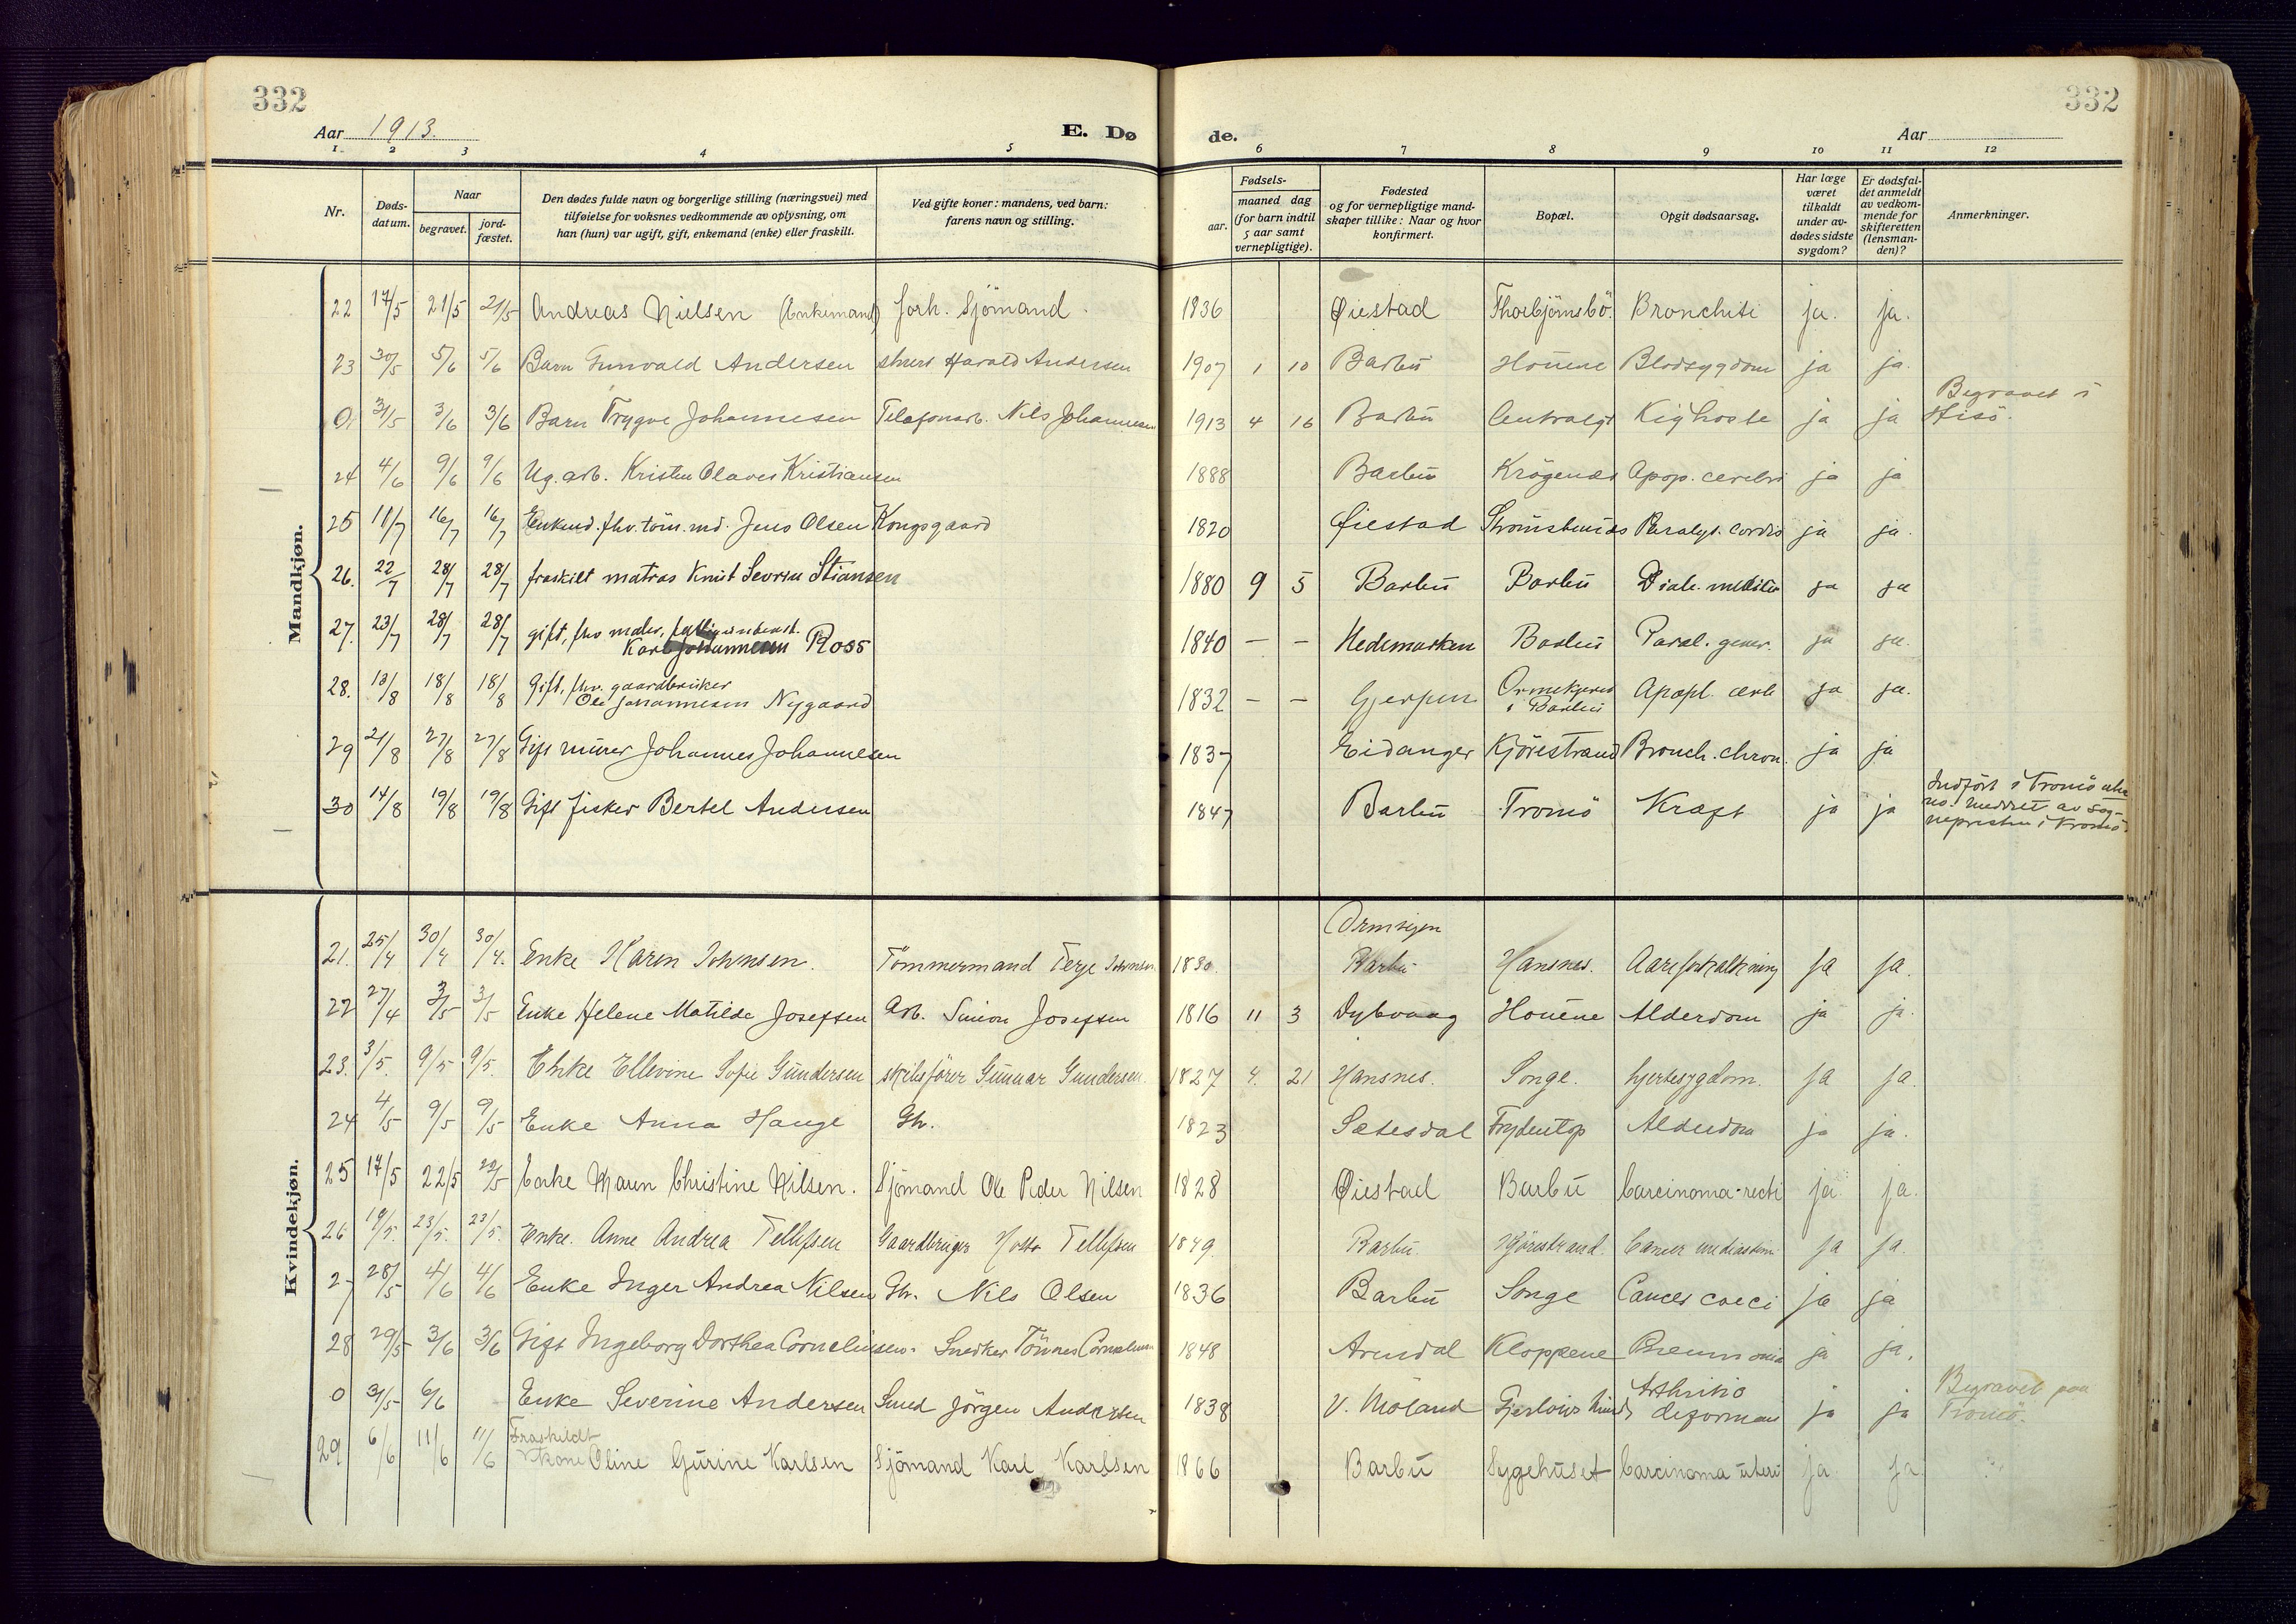 332
332
Aar 1913.
E. Dø
de.
Aar
1 2 3 4 5 6 7 8 9 10 11 12
Nr.
Døds-
datum.
Naar
begravet.
jord-
fæstet.
Den dødes fulde navn og borgerlige stilling (næringsvei) med
tilføielse for voksnes vedkommende av oplysning, om
han (hun) var ugift, gift, enkemand (enke) eller fraskilt.
Ved gifte koner: mandens, ved barn:
farens navn og stilling.
Fødsels-
aar.
maaned dag
(for barn indtil
5 aar samt
vernepligtige).
Fødested
og for vernepligtige mand-
skaper tillike: Naar og hvor
konfirmert.
Bopæl.
Opgit dødsaarsag.
Har læge
været
tilkaldt
under av-
dødes sidste
sygdom?
Er dødsfal-
det anmeldt
av vedkom-
mende for
skifteretten
(lensman-
den)?
Anmerkninger.
Mandkjøn.
22 17/5 21/5 21/5 Andreas Nielsen (Enkemand) forh. Sjömand. 1836 Øiestad Thorbjörnsbö. Bronchiti ja. ja.
23 30/5 5/6 5/6 Barn Gunvald Andersen Harald Andersen 1907 1 10 Barbu Houene Blodsygdom ja ja.
0 31/5 3/6 3/6 Barn Trygve Johannesen Telefonarb. Nils Johannesen 1913 4 16 Barbu Centralgt Kighoste ja ja Begravet i Hisö.
24 4/6 9/6 9/6 Ug. arb. Kristen Olaves Kristiansen 1888 Barbu Krögenæs Apop. cerebri ja ja
25 11/7 16/7 16/7 Enkmd. fhv. töm. md. Jens Olsen Kongsgaard 1820 Øiestad Strömsbunæs Paralys. cordis ja ja.
26. 22/7 28/7 28/7 fraskilt matros Knut Severin Stiansen 1880 9 5 Barbu Barbu Diab. mellitus ja ja
27. 23/7 28/7 28/7 gift, fhv maler,
Karl Johannesen Ross 1840 — — Hedemarken Barbu Paral. gener. ja ja.
28. 13/8 18/8 18/8 Gift, fhv. gaardbruker
Ole Johannesen Nygaard 1832 — — Gjerpen i Barbu Apopl. cereb ja ja.
29 21/8 27/8 27/8 Gift murer Johannes Johannesen 1837 Eidanger Kjörestrand Bronch. chron. ja ja
30 14/8 19/8 19/8 Gift fisker Bertel Andersen 1847 Barbu Tromö Kræft ja ja Indfört i Tromö
no. meddelt av sog-
nepresten i Tromö
Kvindekjøn.
21. 25/4 30/4 30/4. Enke Maren Johnsen. Tömmermand Terje Johnsen 1830. Barbu Hansnes. Aareforkalkning ja ja.
22 27/4 3/5 3/5 Enke Helene Matilde Josefsen Arb. Simon Josefsen 1816 11 3 Dybvaag Houene Alderdom ja ja.
23. 3/5. 9/5 9/5. Enke Ellevine Sofie Gundersen skibsförer Gunnar Gundersen. 1827 4. 21 Hansnes. Songe. hjertesygdom. ja ja.
24 4/5 9/5 9/5 Enke Anna Hauge Gb. 1823 Sætesdal Frydentop Alderdom ja ja.
25 17/5 22/5 22/5 Enke Maren Christine Nilsen. Sjömand Ole Peder Nilsen 1828 Øiestad Barbu Carcinoma recti ja. ja.
26 19/5. 23/5. 23/5. Enke. Anne Andrea Tellefsen Gaardbruger Tellefsen 1849. Barbu. Kjörestrand. Cancer mediastini ja ja.
27 28/5 4/6 4/6 Enke Inger Andrea Nilsen Gb. Nils Olsen 1836 Barbu Songe Cancer coeci ja ja
28 29/5 3/6 3/6 Gift Ingeborg Dorthea Corneliusen. Snedker Tönnes Corneliusen 1848 Arendal Kloppene Pneumonia ja ja.
0 31/5 6/6 Enke Severine Andersen Smed Jörgen Andersen 1838 V. Moland Arthritis deformans ja ja Begravet paa Tromö.
29 6/6 11/6 11/6 Fraskildt
kone Oline Gurine Karlsen Sjömand Karl Karlsen 1866 Barbu Sygehuset Carcinoma uteri ja. ja.